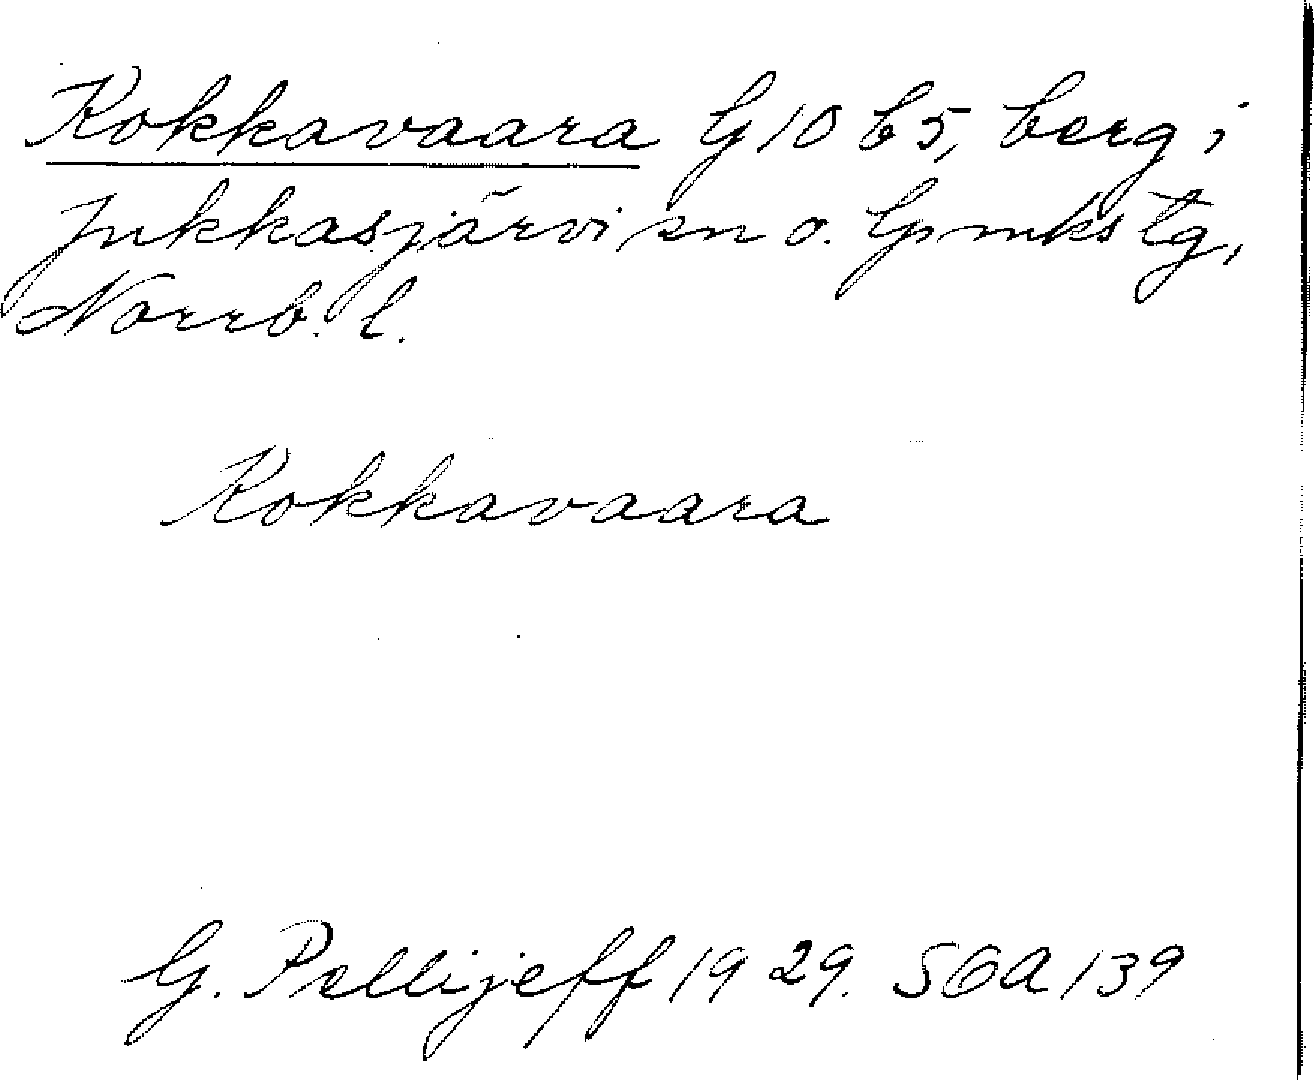 Kokkavaara G 10 b 5, berg i
Jukkasjärvi sn o. lpmks tg,
Norrb. l.
Kokkavaara
G. Pellijeff 1929. SOA 139